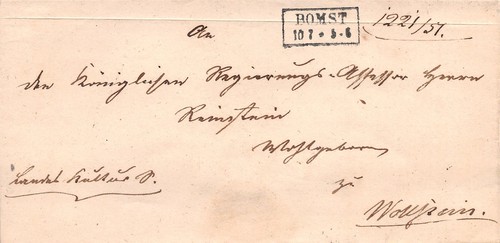 BOMST
10 7 * 5-6
1221/51.
An
den Königlichen Regierungs-Assessor Herrn
Reinstein
Wohlgeboren
zu
Wollstein.
Landes Kultur S.